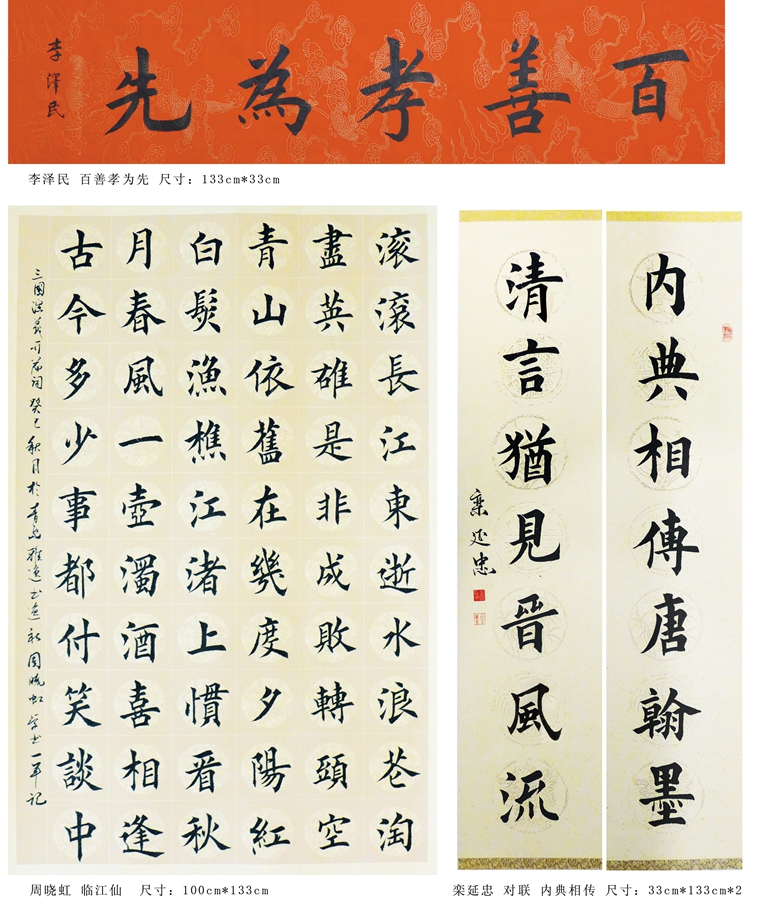 百善孝為先
李泽民
李泽民 百善孝为先 尺寸：133cm*33cm
滚滚長江東逝水浪花淘
盡英雄是非成敗轉頭空
青山依舊在幾度夕陽紅
白髮漁樵江渚上慣看秋
月春風一壺濁酒喜相逢
古今多少事都付笑談中
三國演義開篇詞癸巳秋月於青島雅逸書道社周曉虹学书一年记
周晓虹 临江仙 尺寸：100cm*133cm
内典相傳唐翰墨
清言猶見晋風流
栾延忠
栾延忠 对联 内典相传 尺寸：33cm*133cm*2